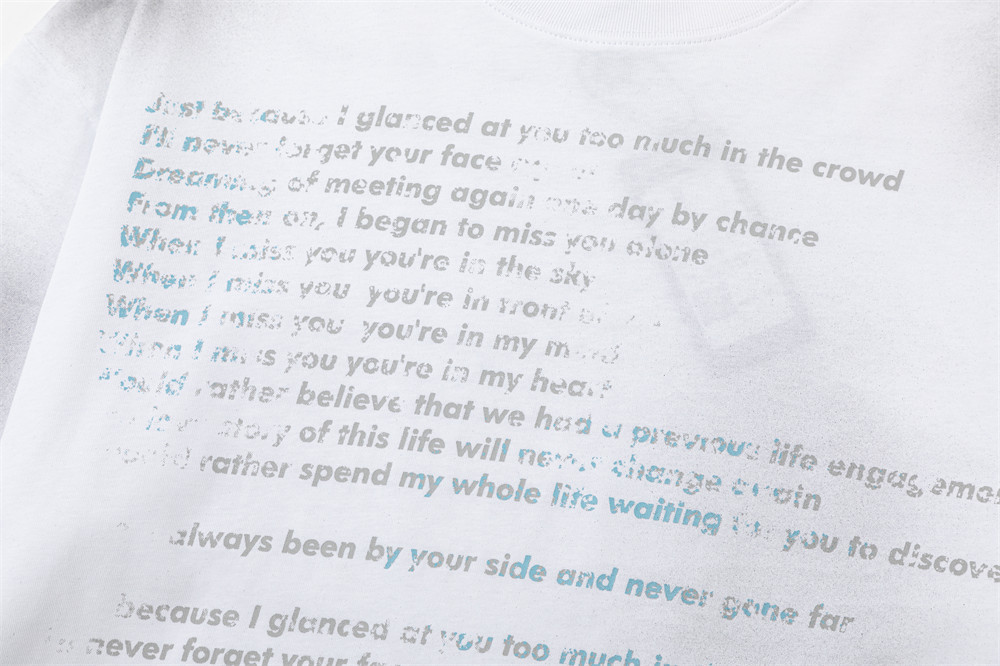 Just because I glanced at you too much in the crowd
I'll never forget your face
Dreaming of meeting again one day by chance
From then on, I began to miss you alone
When I miss you you're in the sky
When I miss you you're in front
When I miss you you're in my mind
When I miss you you're in my heart
would rather believe that we had a previous life
love story of this life will never change again
would rather spend my whole life waiting for you to discover
always been by your side and never gone far
because I glanced at you too much in
never forget your